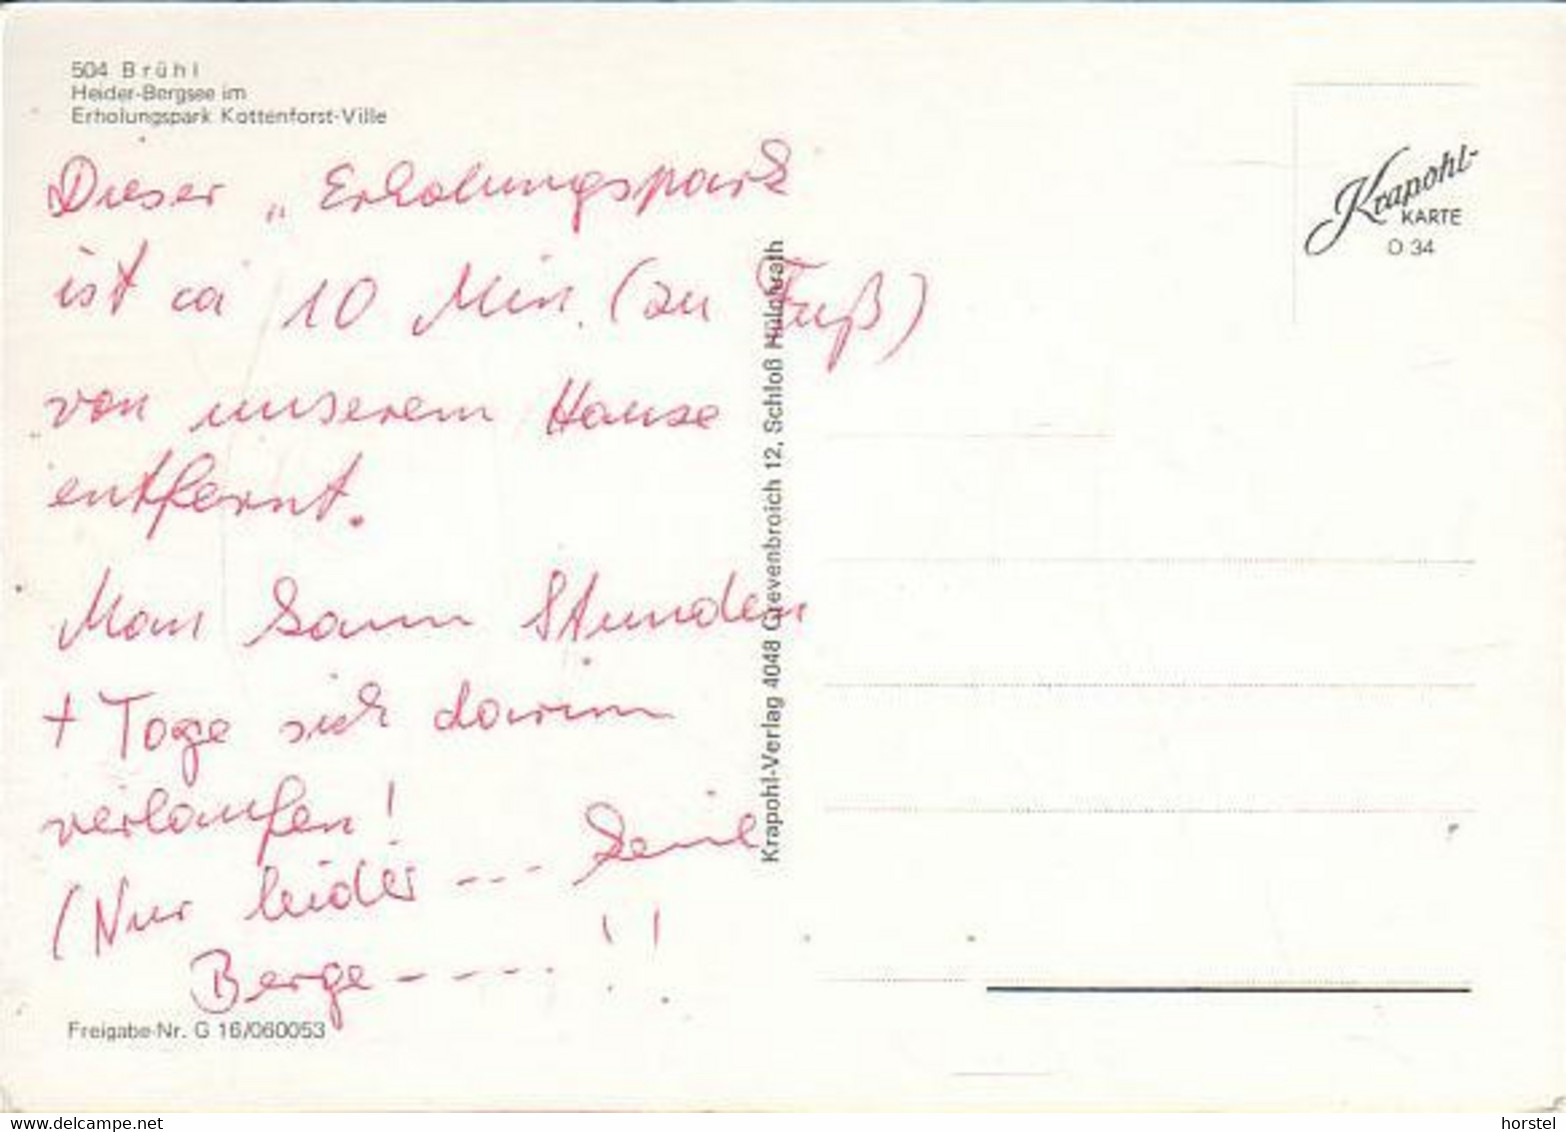 504 Brühl
Heider-Bergsee im
Erholungspark Kottenforst-Ville
Dieser „Erholungspark
ist ca 10 Min. (zu Fuß)
von unserem Hause
entfernt.
Man kann Stunden
+ Tage sich darin
verlaufen!
(Nur leider --- keine
Berge ----!!
Freigabe-Nr. G 16/060053
Krapohl-Verlag 4048 Grevenbroich 12, Schloß Hülchrath
Krapohl-
KARTE
O 34
www.delcampe.net
horstel